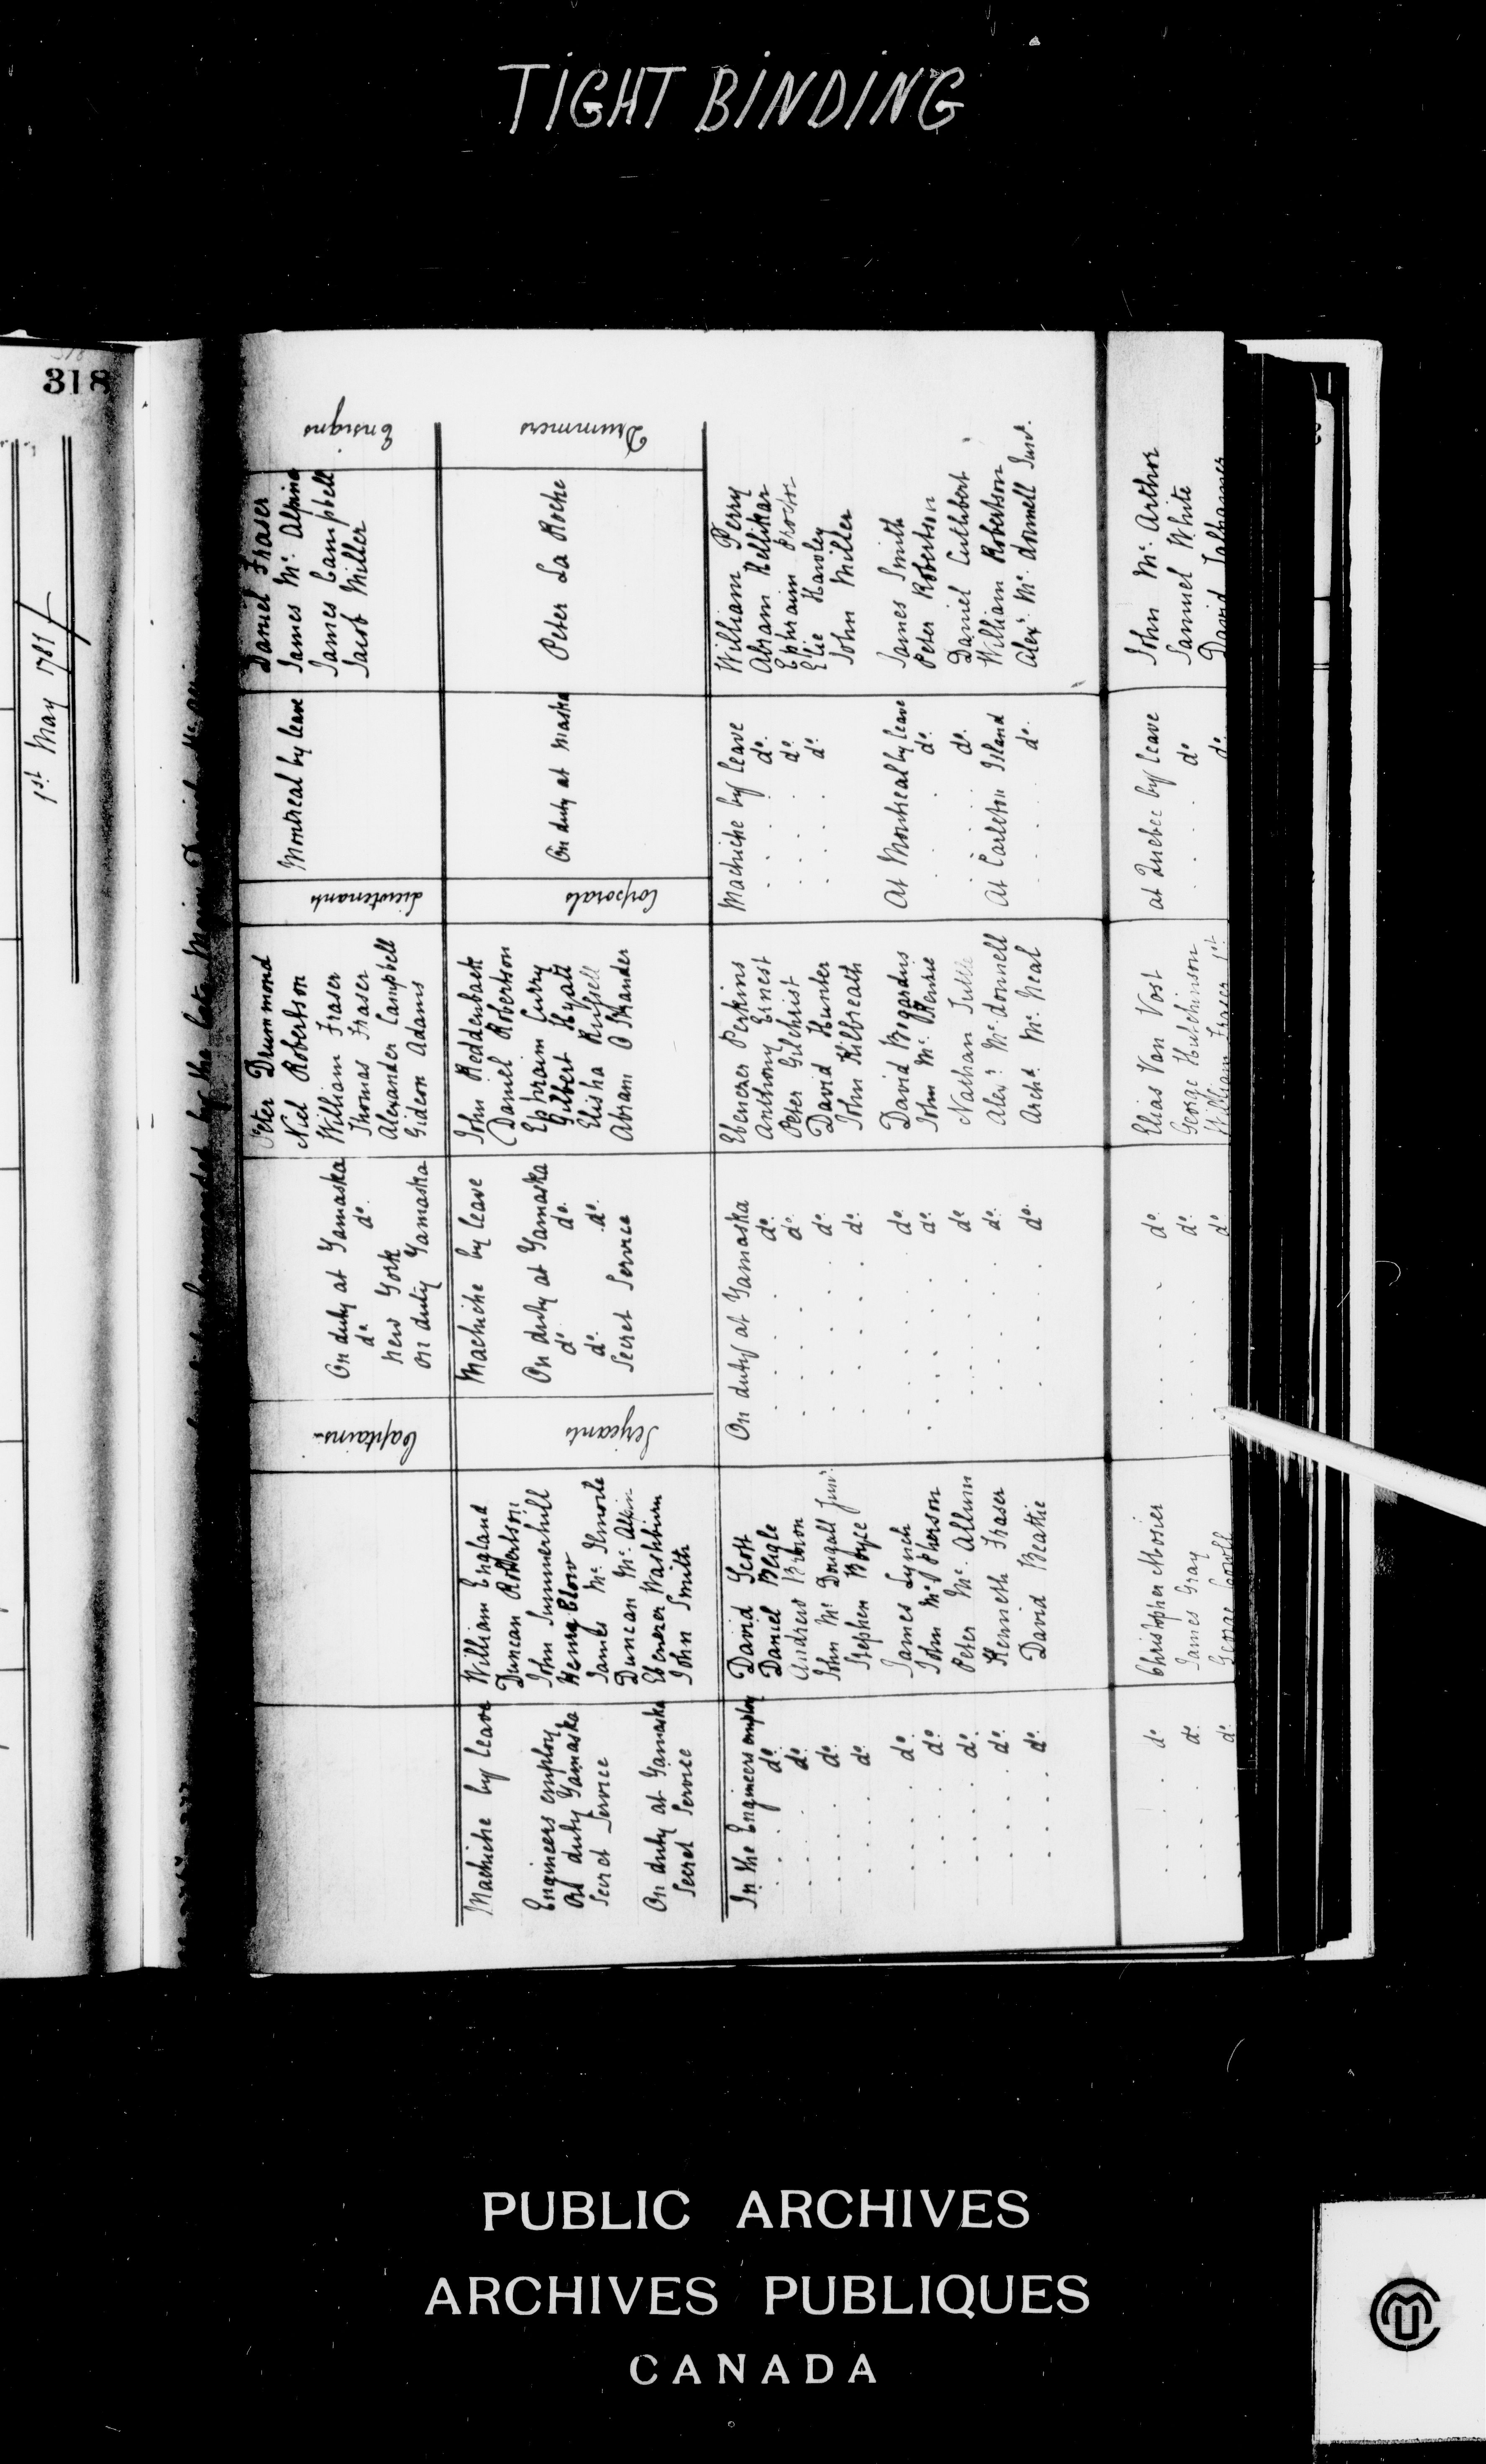 TIGHT BINDING
318
1st May 1781
commanded by the late Major Daniel Mc
Captains
Peter Drummond
Niel Robertson
William Fraser
Thomas Fraser
Alexander Campbell
Gideon Adams
On duty at Yamaska
do. do.
New York
on duty Yamaska
Lieutenants
Daniel Fraser
James Mc. Alpine
James Campbell
Jacob Miller
Montreal by leave
Ensigns
Machiche by leave
Engineers employ
On duty Yamaska
Secret Service
On duty at Yamaska
Secret Service
William England
Duncan Robertson
John Summerhill
Henry Blow
James Mc. Ilmoile
Duncan Mc. Alpin
Ebenezer Washburn
John Smith
Serjeants
Machiche by leave
On duty at Yamaska
do. do.
do. do.
Secret Service
John Reddenback
Daniel Robertson
Ephraim Curry
Gilbert Hyatt
Elisha Russell
Abram O Strander
Corporals
On duty at Maska
Peter La Roche
Drummers
In the Engineers employ
do.
do.
do.
do.
do.
do.
do.
do.
do.
David Scott
Daniel Beagle
Andrew Brown
John Mc Dougall Junr.
Stephen Boyce
James Lynch
John Mc. Pherson
Peter Mc. Allum
Kenneth Fraser
David Beattie
On duty at Yamaska
do.
do.
do.
do.
do.
do.
do.
do.
do.
Ebenezer Perkins
Anthony Ernest
Peter Gilchrist
David Hunter
John Kilbreath
David Bogardus
John Mc. Kenzie
Nathan Tuttle
Alexr. Mc. donnell
Archd. Mc. Neal
Machiche by leave
do.
do.
do.
At Montreal by leave
do.
do.
At Carleton Island
do.
William Perry
Abram Hellikar
Ephraim Proctor
Elie Hawley
John Miller
James Smith
Peter Robertson
Daniel Cuthbert
William Robertson
Alexr. Mc. donnell Junr.
do.
do.
do.
Christopher Mosier
James Gray
George
do.
do.
do.
Elias Van Vost
George Hutchinson
William Fraser 1st.
at Quebec by leave
do.
do.
John Mc. Arthor
Samuel White
David
PUBLIC ARCHIVES
ARCHIVES PUBLIQUES
CANADA